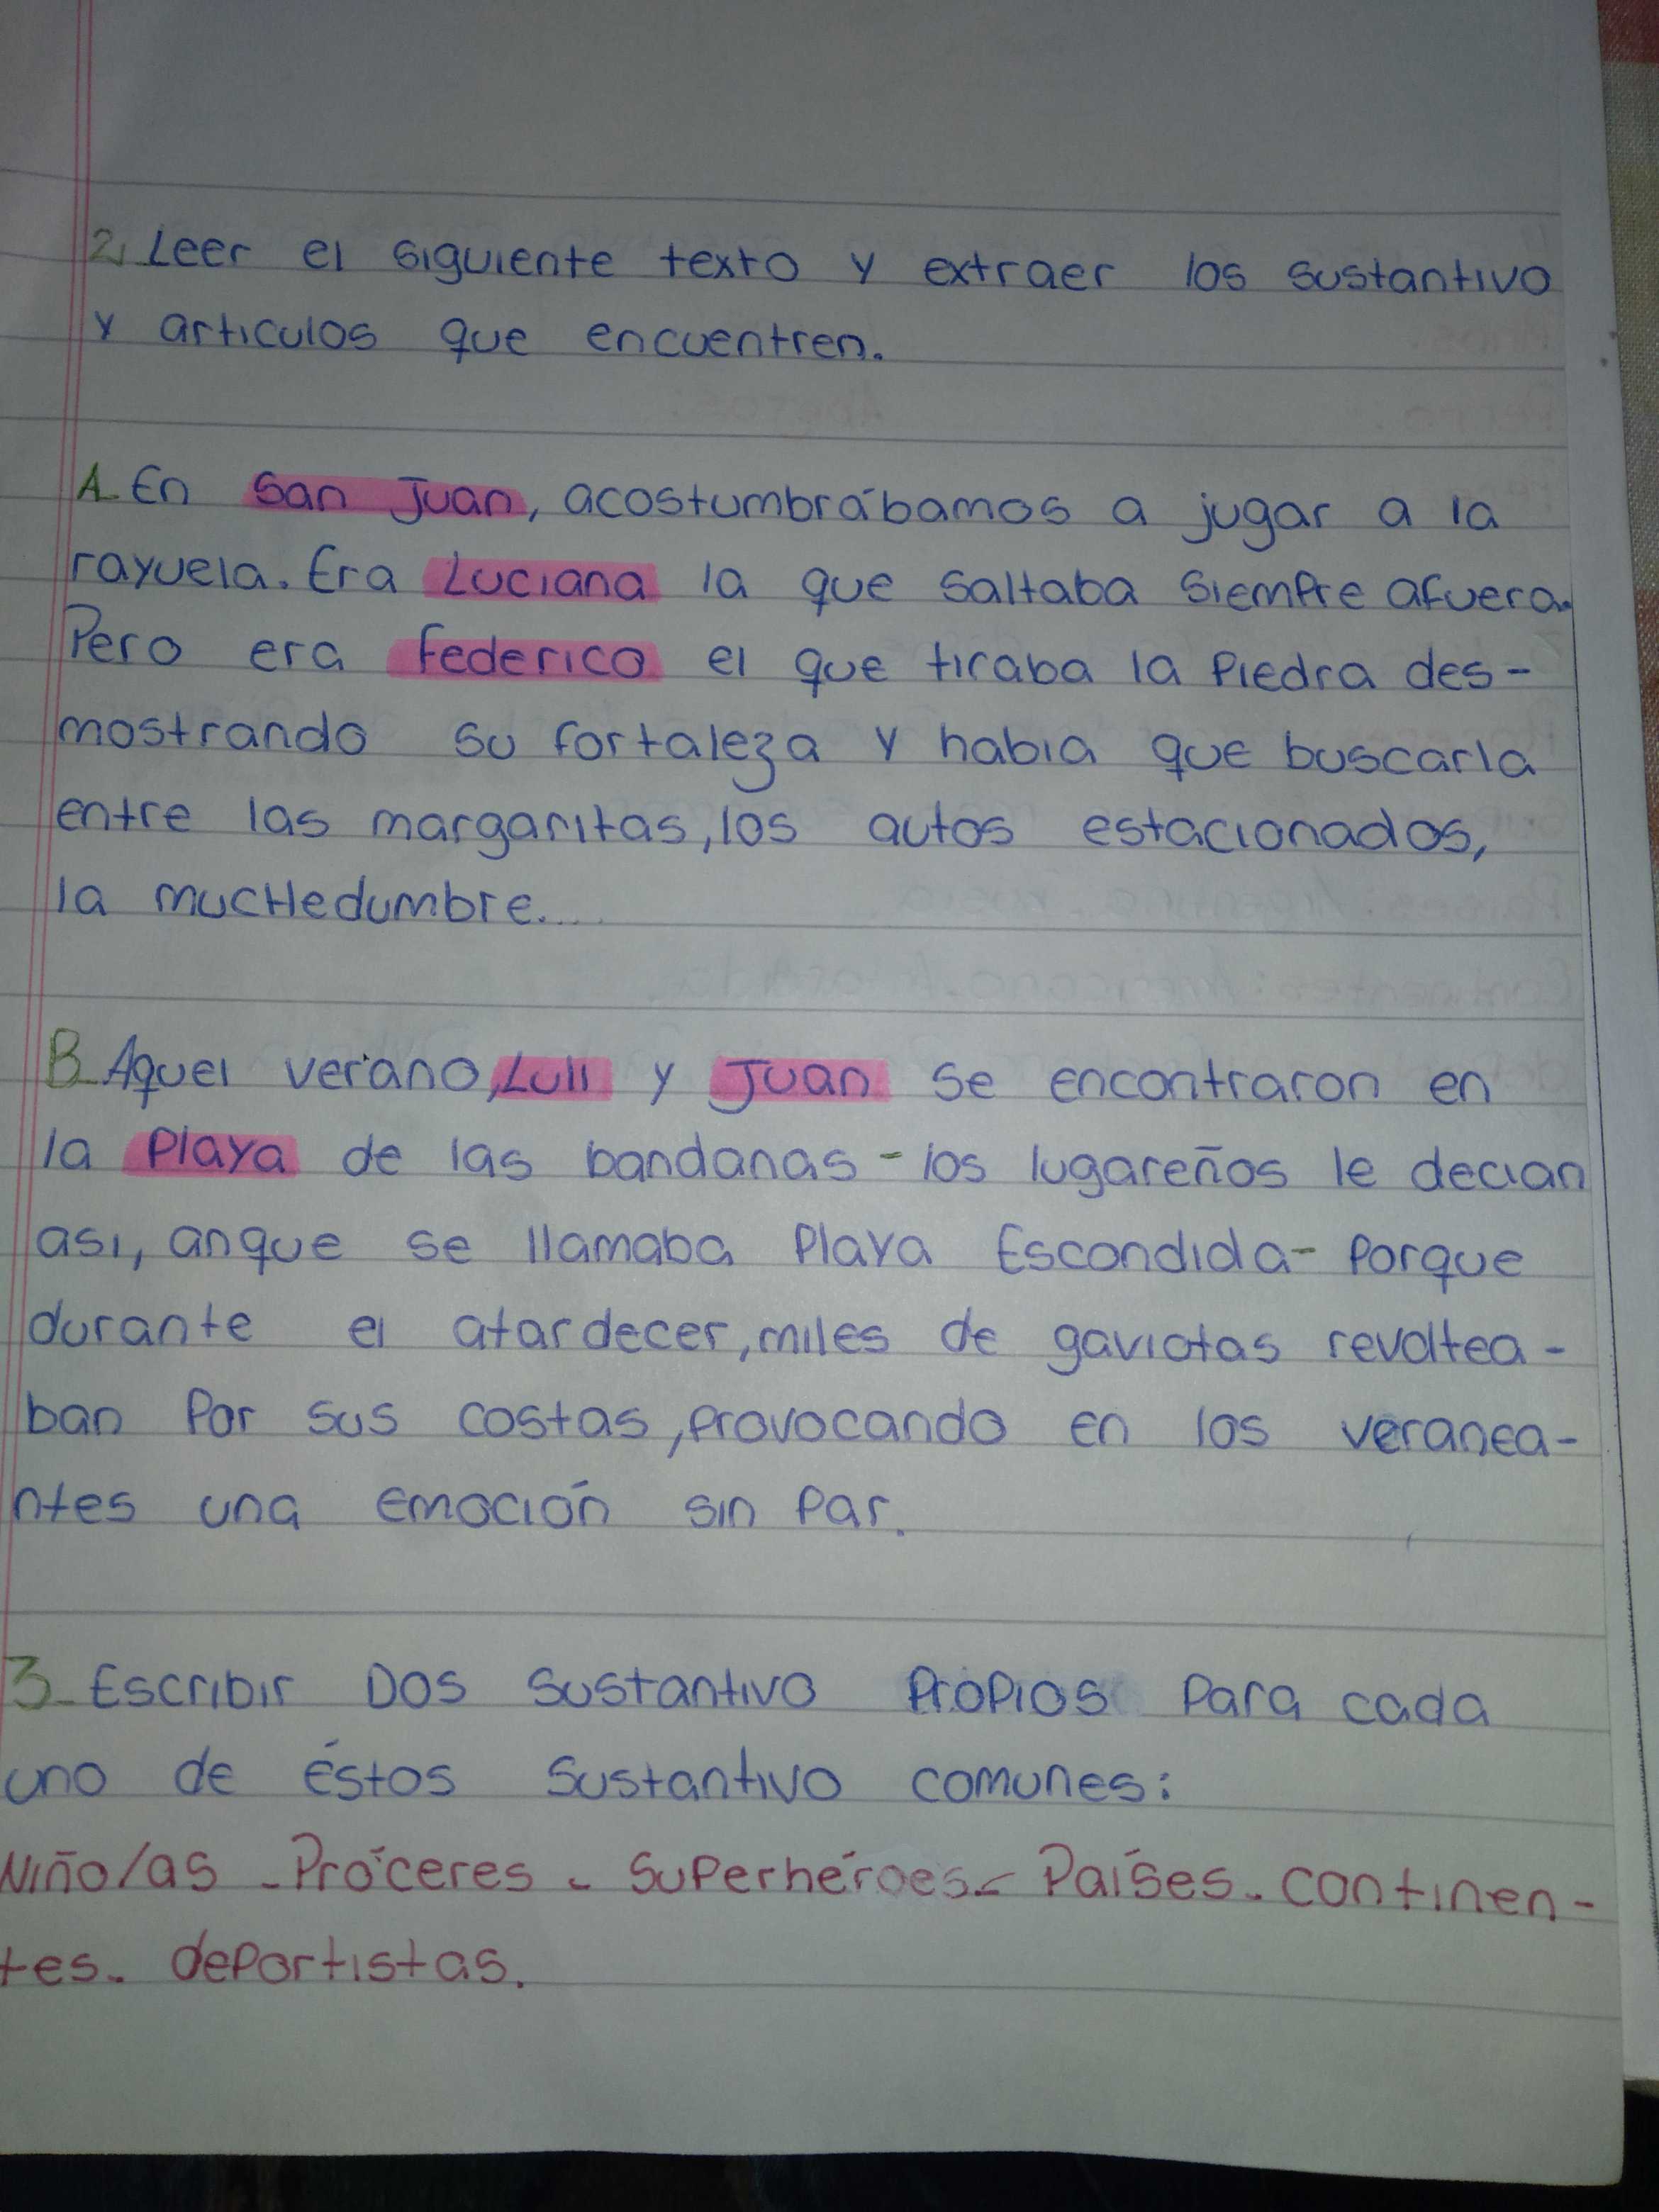 2, Leer el siguiente texto y extraer los sustantivo
y articulos que encuentren.
A_ En San Juan, acostumbrábamos a jugar a la
rayuela. Era Luciana la que saltaba siempre afuera.
Pero era Federico el que tiraba la piedra des-
mostrando su fortaleza y habia que buscarla
entre las margaritas, los autos estacionados,
la mucHedumbre....
B_ Aquel verano, Luli y Juan se encontraron en
la Playa de las bandanas - los lugareños le decian
asi, anque se llamaba Playa Escondida - Porque
durante el atardecer, miles de gaviotas revoltea-
ban por sus costas, provocando en los veranea-
ntes una emoción sin par.
3_ Escribir Dos sustantivo Propios para cada
uno de éstos sustantivo comunes:
Niño/as - Próceres - Superhéroes - Países. continen-
tes. deportistas.